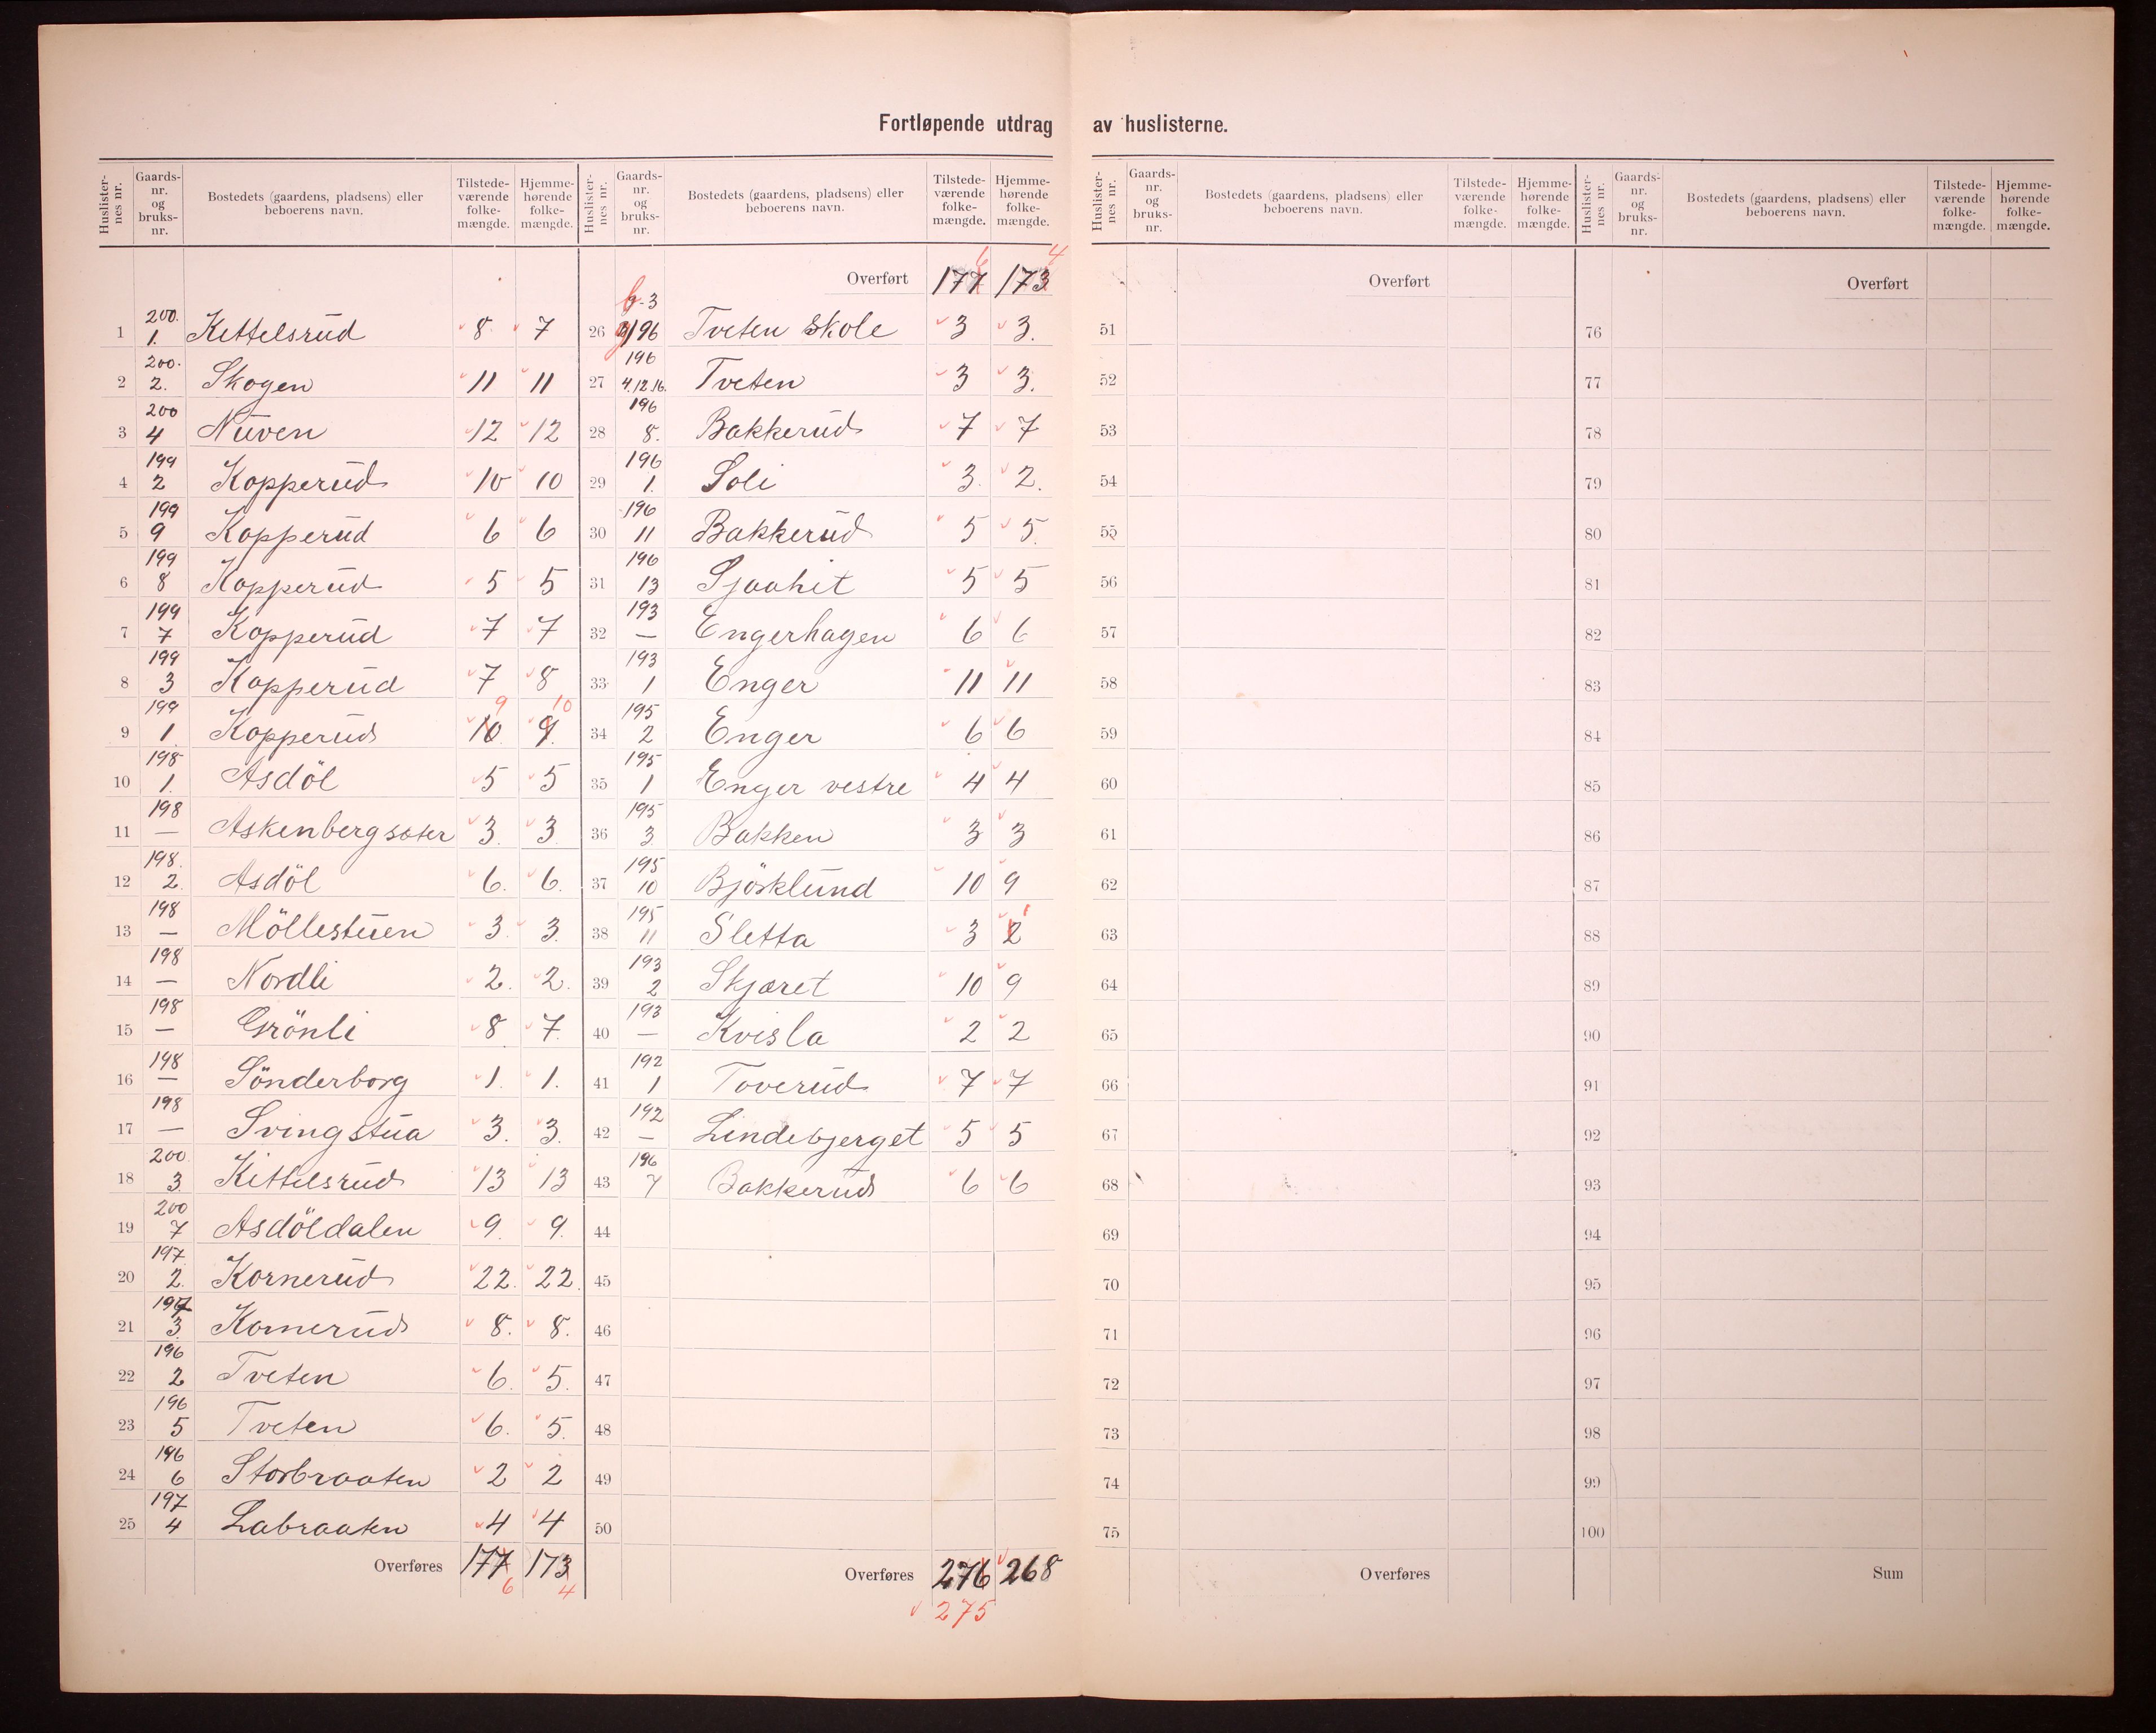 Fortløpende utdrag av huslisterne.
Huslister-nes nr. Gaards-nr. og bruks-nr. Bostedets (gaardens, pladsens) eller beboerens navn. Tilstede-værende folke-mængde. Hjemme-hørende folke-mængde.
1 200. 1. Kettelsrud 8. 7
2 200. 2. Skogen 11 11
3 200 4 Nuven 12 12
4 199 2 Kopperud 10 10
5 199 9 Kopperud 6 6
6 199 8 Kopperud 5 5
7 199 7 Kopperud 7 7
8 199 3 Kopperud 7 8
9 199 1. Kopperud 10 9 9. 10
10 198 1. Asdöl 5 5
11 198 — Askenbergsæter 3. 3
12 198. 2. Asdöl 6. 6.
13 198 — Möllestuen 3. 3.
14 198 — Nordli 2. 2.
15 198 — Grönli 8. 7.
16 198 — Sönderborg 1. 1.
17 198 — Svingstua 3. 3.
18 200. 3. Kittilsrud 13 13
19 200 7 Asdöldalen 9. 9.
20 197. 2. Kornerud 22. 22.
21 197 3. Kornerud 8. 8.
22 196 2 Tveten 6. 5.
23 196 5 Tveten 6. 5.
24 196 6 Storbraaten 2 2
25 197 4 Labraaten 4 4
Overføres 177 6 173 4
Huslister-nes nr. Gaards-nr. og bruks-nr. Bostedets (gaardens, pladsens) eller beboerens navn. Tilstede-værende folke-mængde. Hjemme-hørende folke-mængde.
Overført 177 6 173 4
26 196 Tveten skole 3 3.
27 196 4.12.16. Tveten 3 3.
28 196 8. Bakkerud 7 7
29 196 1. Soli 3. 2.
30 196 11 Bakkerud 5 5.
31 196 13 Sjaahit 5 5
32 193 — Engerhagen 6 6
33 193 1 Enger 11 11
34 195 2 Enger 6 6
35 195 1 Enger vestre 4 4
36 195 3. Bakken 3 3
37 195 10 Björklund 10 9
38 195 11 Sletta 3 2 1
39 193 2 Skjæret 10 9
40 193 — Kvisla 2 2
41 192 1 Toverud 7 7
42 192 — Lindebjerget 5 5
43 196 7 Bakkerud 6 6
44
45
46
47
48
49
50
Overføres 276 268
275
Huslister-nes nr. Gaards-nr. og bruks-nr. Bostedets (gaardens, pladsens) eller beboerens navn. Tilstede-værende folke-mængde. Hjemme-hørende folke-mængde.
Overført
51
52
53
54
55
56
57
58
59
60
61
62
63
64
65
66
67
68
69
70
71
72
73
74
75
Overføres
Huslister-nes nr. Gaards-nr. og bruks-nr. Bostedets (gaardens, pladsens) eller beboerens navn. Tilstede-værende folke-mængde. Hjemme-hørende folke-mængde.
Overført
76
77
78
79
80
81
82
83
84
85
86
87
88
89
90
91
92
93
94
95
96
97
98
99
100
Sum